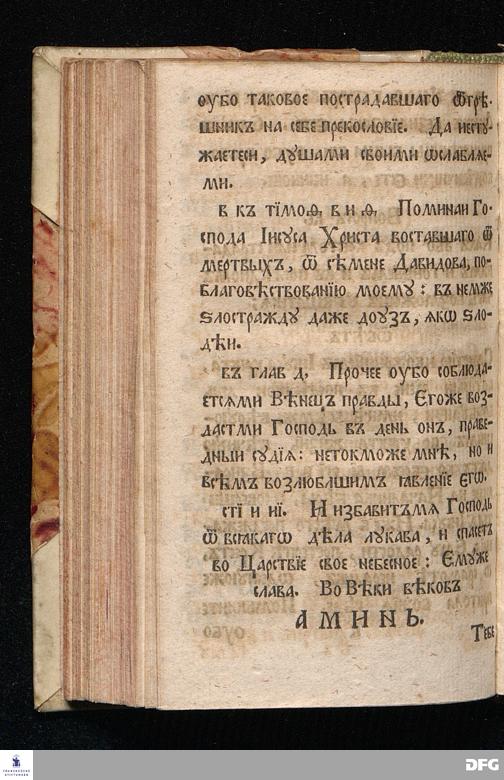 ѹбо таковое пострадавшаго ѿ грѣ-
шникъ на себе прекословїе. Да нестꙋ-
жаетеси, дꙋшами своими ѡслаблѧе-
ми.
в къ тїмоѳ, в и ѳ, Помилаи Го-
спода Іисꙋса Христа воставшаго ѿ
мертвыхъ, ѿ сѣмене Давидова, по-
благовѣствованїю моемꙋ : въ немже
ѕлостраждꙋ даже доꙋзъ, ѧкѡ ѕло-
дѣи.
въ глав д, Прочее ѹбо соблюда-
етсѧми Вѣнецъ правды, Єгоже воз-
дастми Господь въ день онъ, праве-
дныи сꙋдїѧ: нетокможе мнѣ, но и
всѣмъ возлюблшимъ ꙗвленїе єгѡ.
стї и иї. И избавитъмѧ Господь
ѿ всѧкагѡ дѣла лꙋкава, и спасетъ
во Царствїе свое небесное : Ємꙋже
слава. Во Вѣки вѣковъ
АМИНЬ.
Тебе
FRANCKESCHE
STIFTUNGEN
DFG